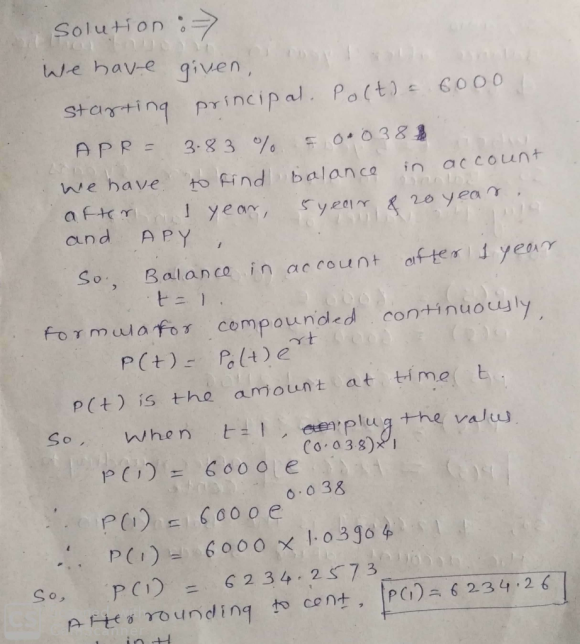 Solution :⇒
We have given,
starting principal. P₀(t) = 6000
APR = 3.83 % = 0.038
we have to find balance in account
after 1 year, 5 year & 20 year.
and APY,
So, Balance in account after 1 year
t = 1.
formula for compounded continuously,
P(t) = P₀(t)e^rt
P(t) is the amount at time t.
So, When t=1, plug the valus.
P(1) = 6000 e^(0.038)×1
∴ P(1) = 6000 e^0.038
∴ P(1) = 6000 × 1.03904
So, P(1) = 6234.2573
After rounding to cent, P(1) = 6234.26